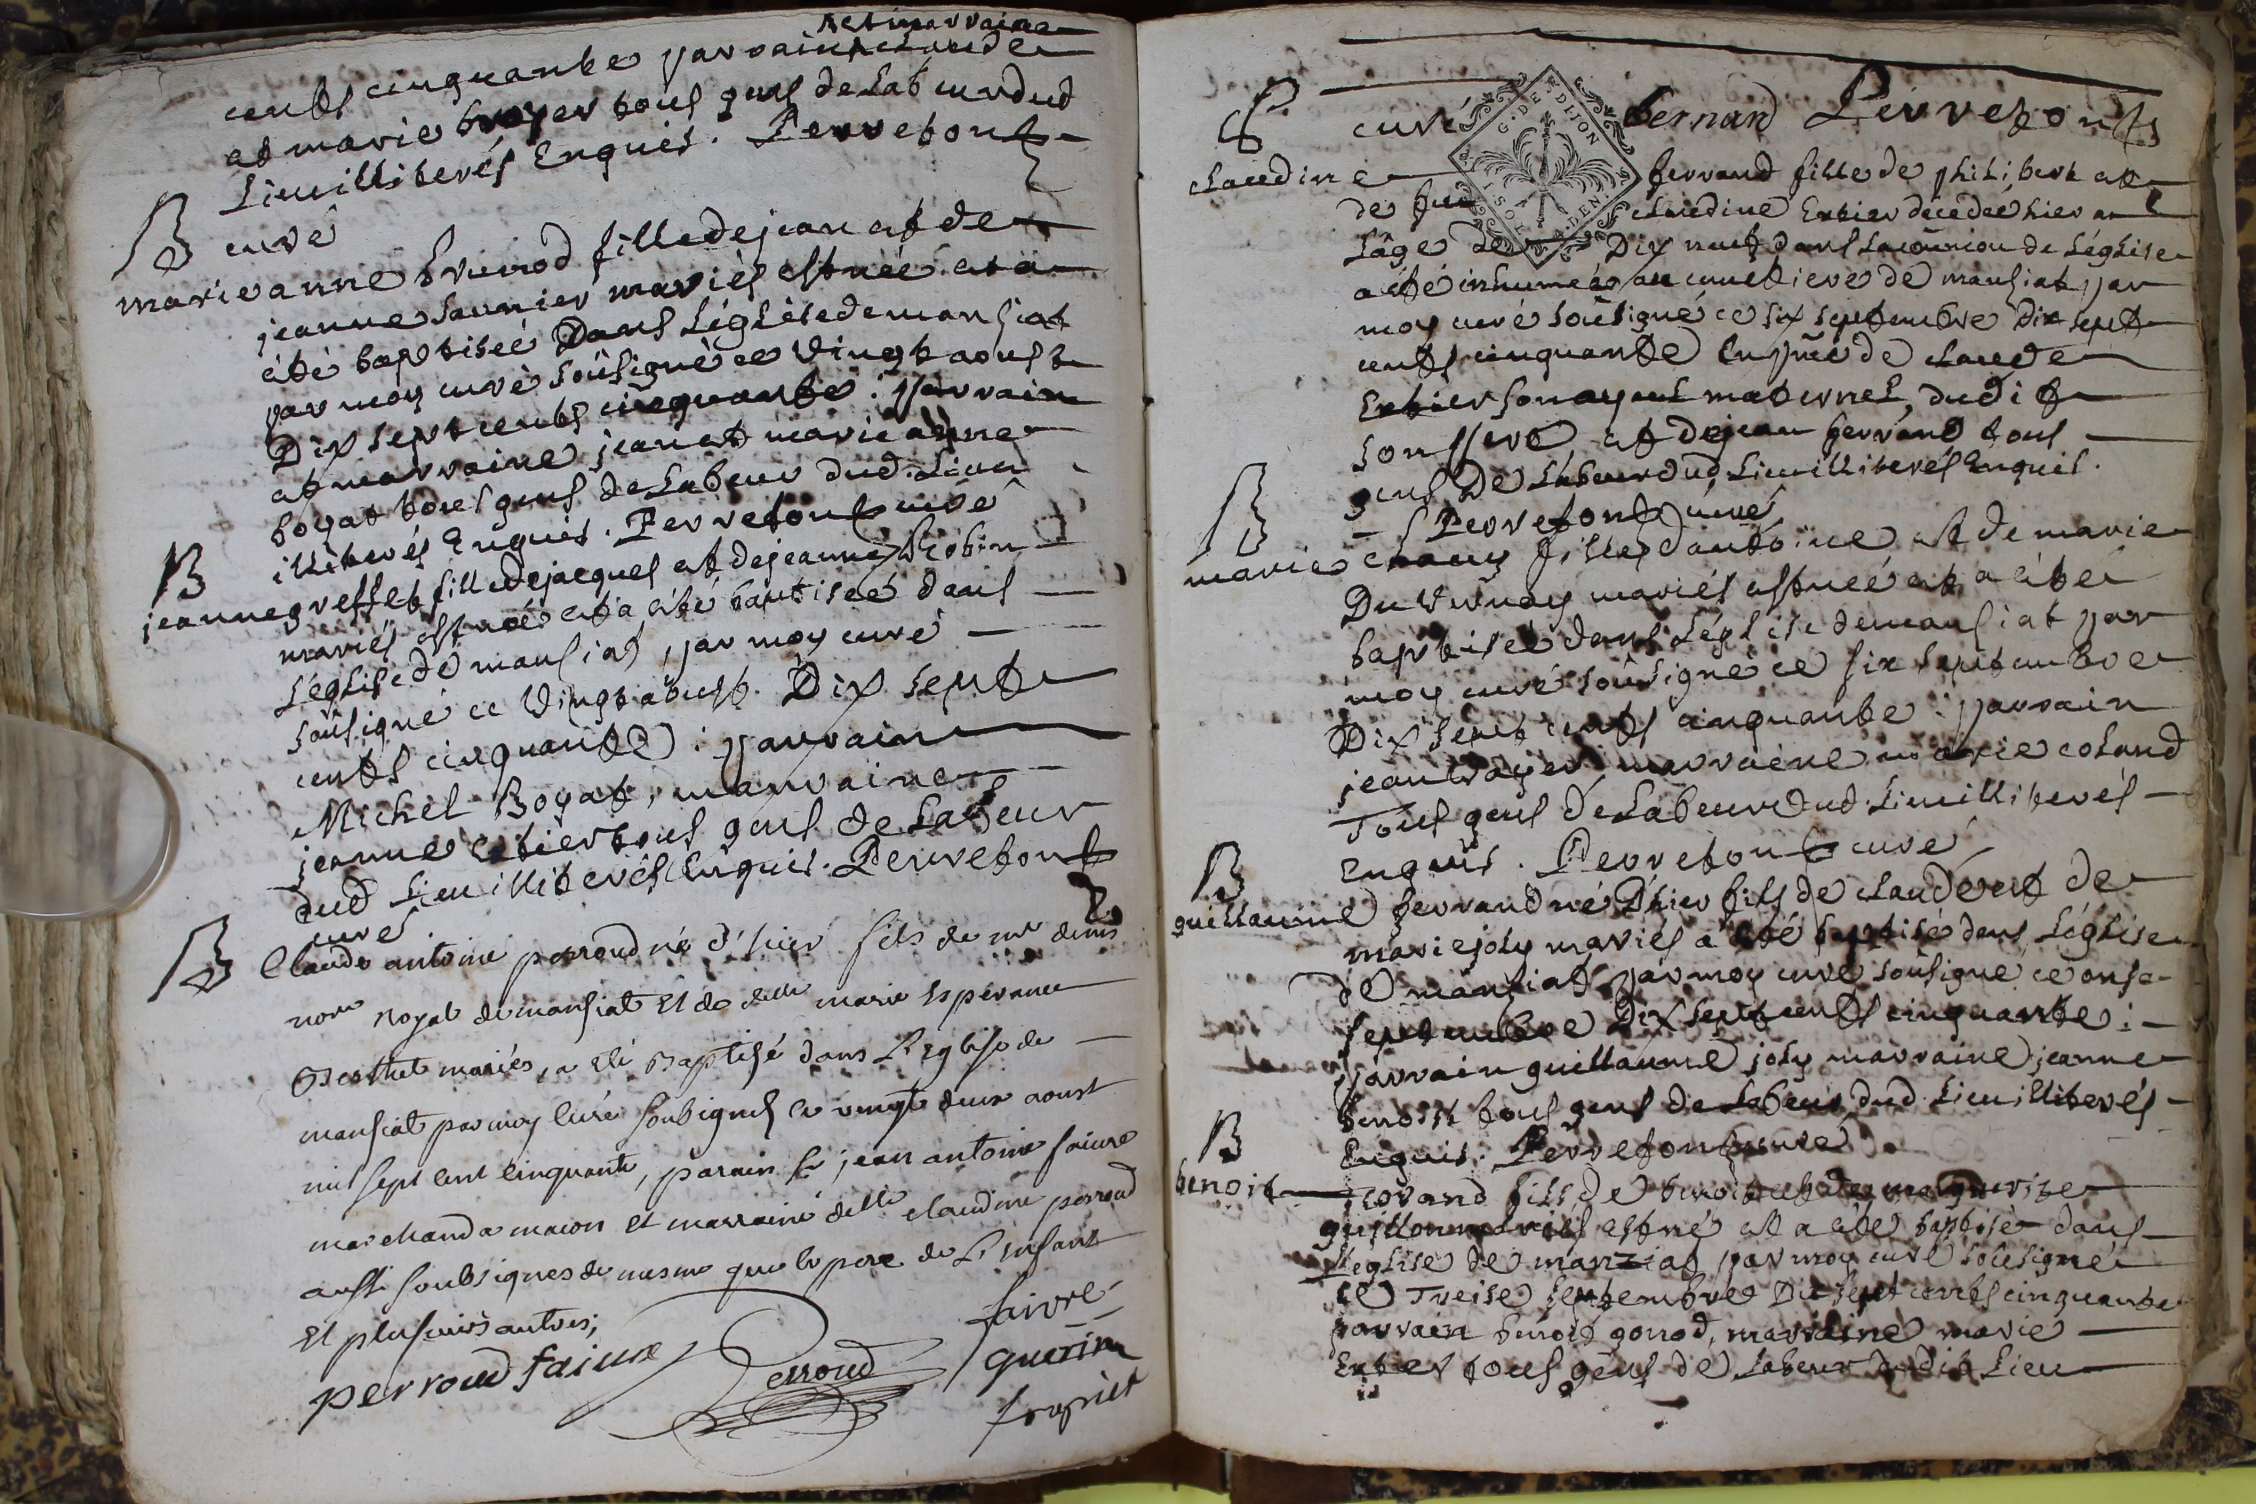 et marraine
cents cinquante parrain claude
et marie broyer tous gens de lab eurdud
Lieuilliterés Enquis. Perreton
curé
B
marieanne brunod filledejean et de
jeanne saunier mariés estnée et a
été baptisée Dans l'églisedemansiat
par moy curé soûsigné ce vingt aoust
Dix sept cents cinquante : parrain
et marraine jean et marieanne
boyat tous gens de Labeur dud. Lieu
illiterés Enquis. Perreton curé
B
jeannegreffet filledejacques et dejeanne Robin
mariés est née et a été baptisée dans
L'églisede mansiat, par moy curé
soûsigné ce vingt aoust. Dix sept
cents cinquante : parrain
Michel Boyat, marraine
jeanne Ertier tous gens de Labeur
dud Lieu illiterés Enquis. Perreton
curé
B
Claude antoine perroud né d'hier fils de mr denis
nore Royal de mansiat Et de delle marie Esperance
Berthet mariés, a été Baptisé dans L'Eglise de
mansiat par moy Curé soubsigné ce vingt deux aoust
mil sept cent cinquante, parain Sr jean antoine faivre
marchand a macon Et marraine delle claudine perroud
aussi soubsignés de mesme que le pere de L'Enfant
Et plusieurs autres;
perroud faivre Perroud faivre
guerin
curé bernard Perreton
claudine ferrand fille de philibert et
de claudine Ertier décedée hier a
L'âge de Dix neuf dans la communion de L'église
a été inhumée au cimetiere de mansiat, par
moy curé soûsigné ce six septembre dix sept
cents cinquante En pnce de claude
Ertier son ayeul maternel, dudit
son pere et dejean ferrand tous
gens De Labeurdud Lieuilliterés Enquis.
Perreton curé
B
marie chany filled'antoine et de marie
Duvernay mariés estnée et a été
baptisée dans L'église demansiat par
moy curé soûsigné ce six septembre
Dix sept cents cinquante : parrain
jean broyer marraine marie coland
Tous gens de Labeur dud. Lieuilliterés
Enquis. Perreton curé
B
guillaume ferrand né D'hier fils de claude et de
mariejoly mariés a été baptisé dans L'église
de mansiat, par moy curé soûsigné ce onse
septembre Dix sept cents cinquante :
parrain guillaume joly marraine jeanne
benoist tous gens de Labeur dud Lieuilliterés
Enquis. Perreton curé
B
benoit ferrand fils de benoit et de marguerite
guillon mariés est né et a été baptisé dans
L'église de manziat par moy curé soûsigné
ce Treise septembre Dix sept cents cinquante
parrain benoit gonod, marraine marie
Ertier tous gens de Labeur dudit Lieu
G. DE DIJON